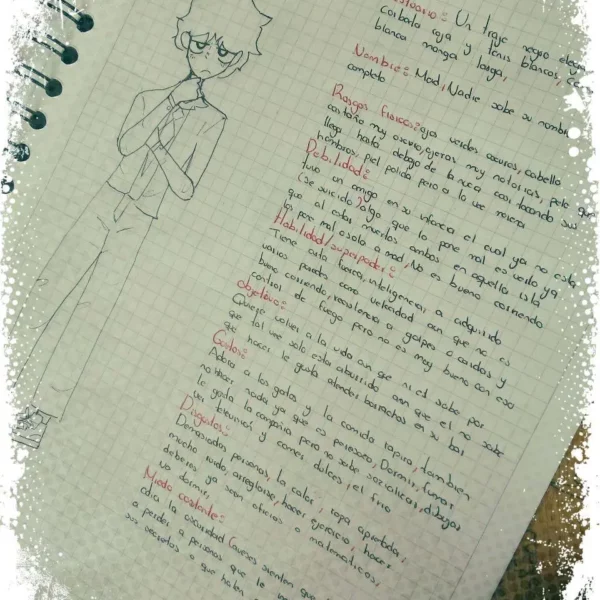 Vestuario: Un traje negro elegan
corbata roja y tenis blancos, ca
blanca manga larga,
Nombre: Mod, Nadie sabe su nombre
completo
Rasgos fisicos: ojos verdes oscuros, cabello
castaño muy oscuro, ojeras muy notorias, pelo que
llega hasta debajo de la nuca casi tocando sus
hombros, piel palida pero a la vez morena
Debilidad:
tuvo un amigo en su infancia el cual ya no esta
(se suicido) algo que lo pone mal es verlo ya
que al estar muertos ambos en aquella isla
los pone mal o solo a mod, No es bueno corriendo
Habilidad/superpoder:
Tiene arta fuerza, inteligencia, a adquirido
varios poderes como velocidad aun que no es
bueno corriendo, resistencia a golpes o caidas y
control de fuego pero no es muy bueno con eso
Objetivo:
Quiere volver a la vida aun que ni el sabe por
que tal vez solo esta aburrido aun que el no sabe
que hacer le gusta atender borrachos en su bar
Gustos:
Adora a los gatos y la comida rapida, tambien
no hacer nada ya que es perezoso, Dormir, fumar
le gusta la compañia pero no sabe sozializar, dibujar
ver television y comer dulces, el frio
Disgustos:
Demasiadas personas, la calor, ropa apretada,
mucho ruido, arreglarse, hacer ejercicio, hacer
deberes ya sean oficios o matematicas,
no dormir,
Miedo constante:
odia la oscuridad (aveses sienten que
a perder a personas que le
sus secretos o que hablen